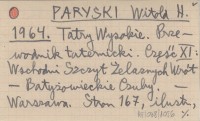 PARYSKI Witold H.
1964. Tatry Wysokie. Prze-
wodnik taternicki. Część XI:
Wschodni Szczyt Żelaznych Wrót
– Batyżowieckie Czuby –
Warszawa. Stron 167, ilustr.,